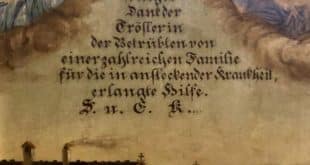 Dank der
Trösterin
der Betrübten von
einer zahlreichen Familie
für die in ansteckender Krankheit,
erlangte Hilfe.
S. u. E. K....